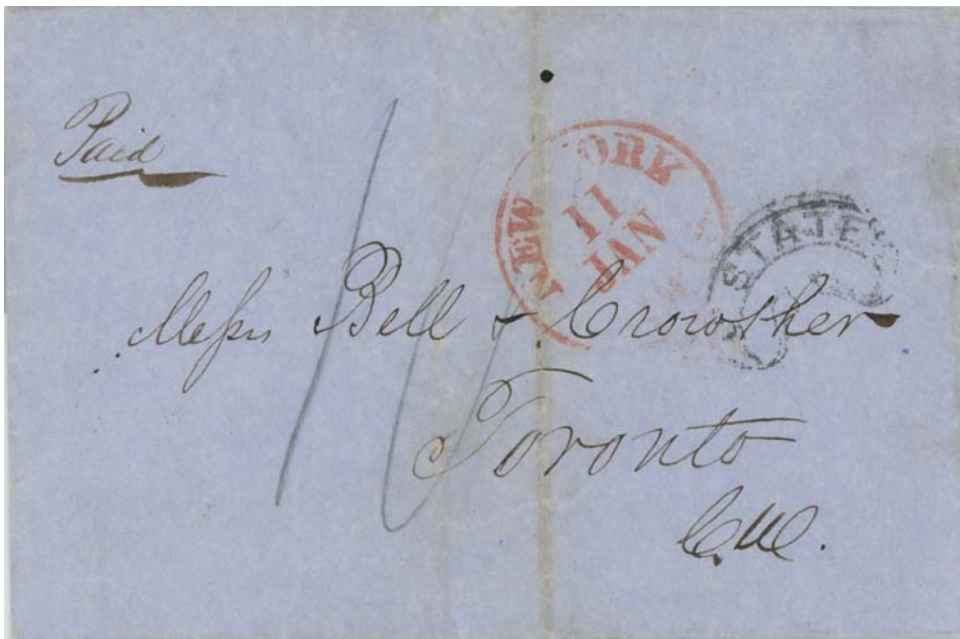 Paid
10
NEW YORK
11
JAN
STATES
Messrs Bell & Crowther
Toronto
C.W.